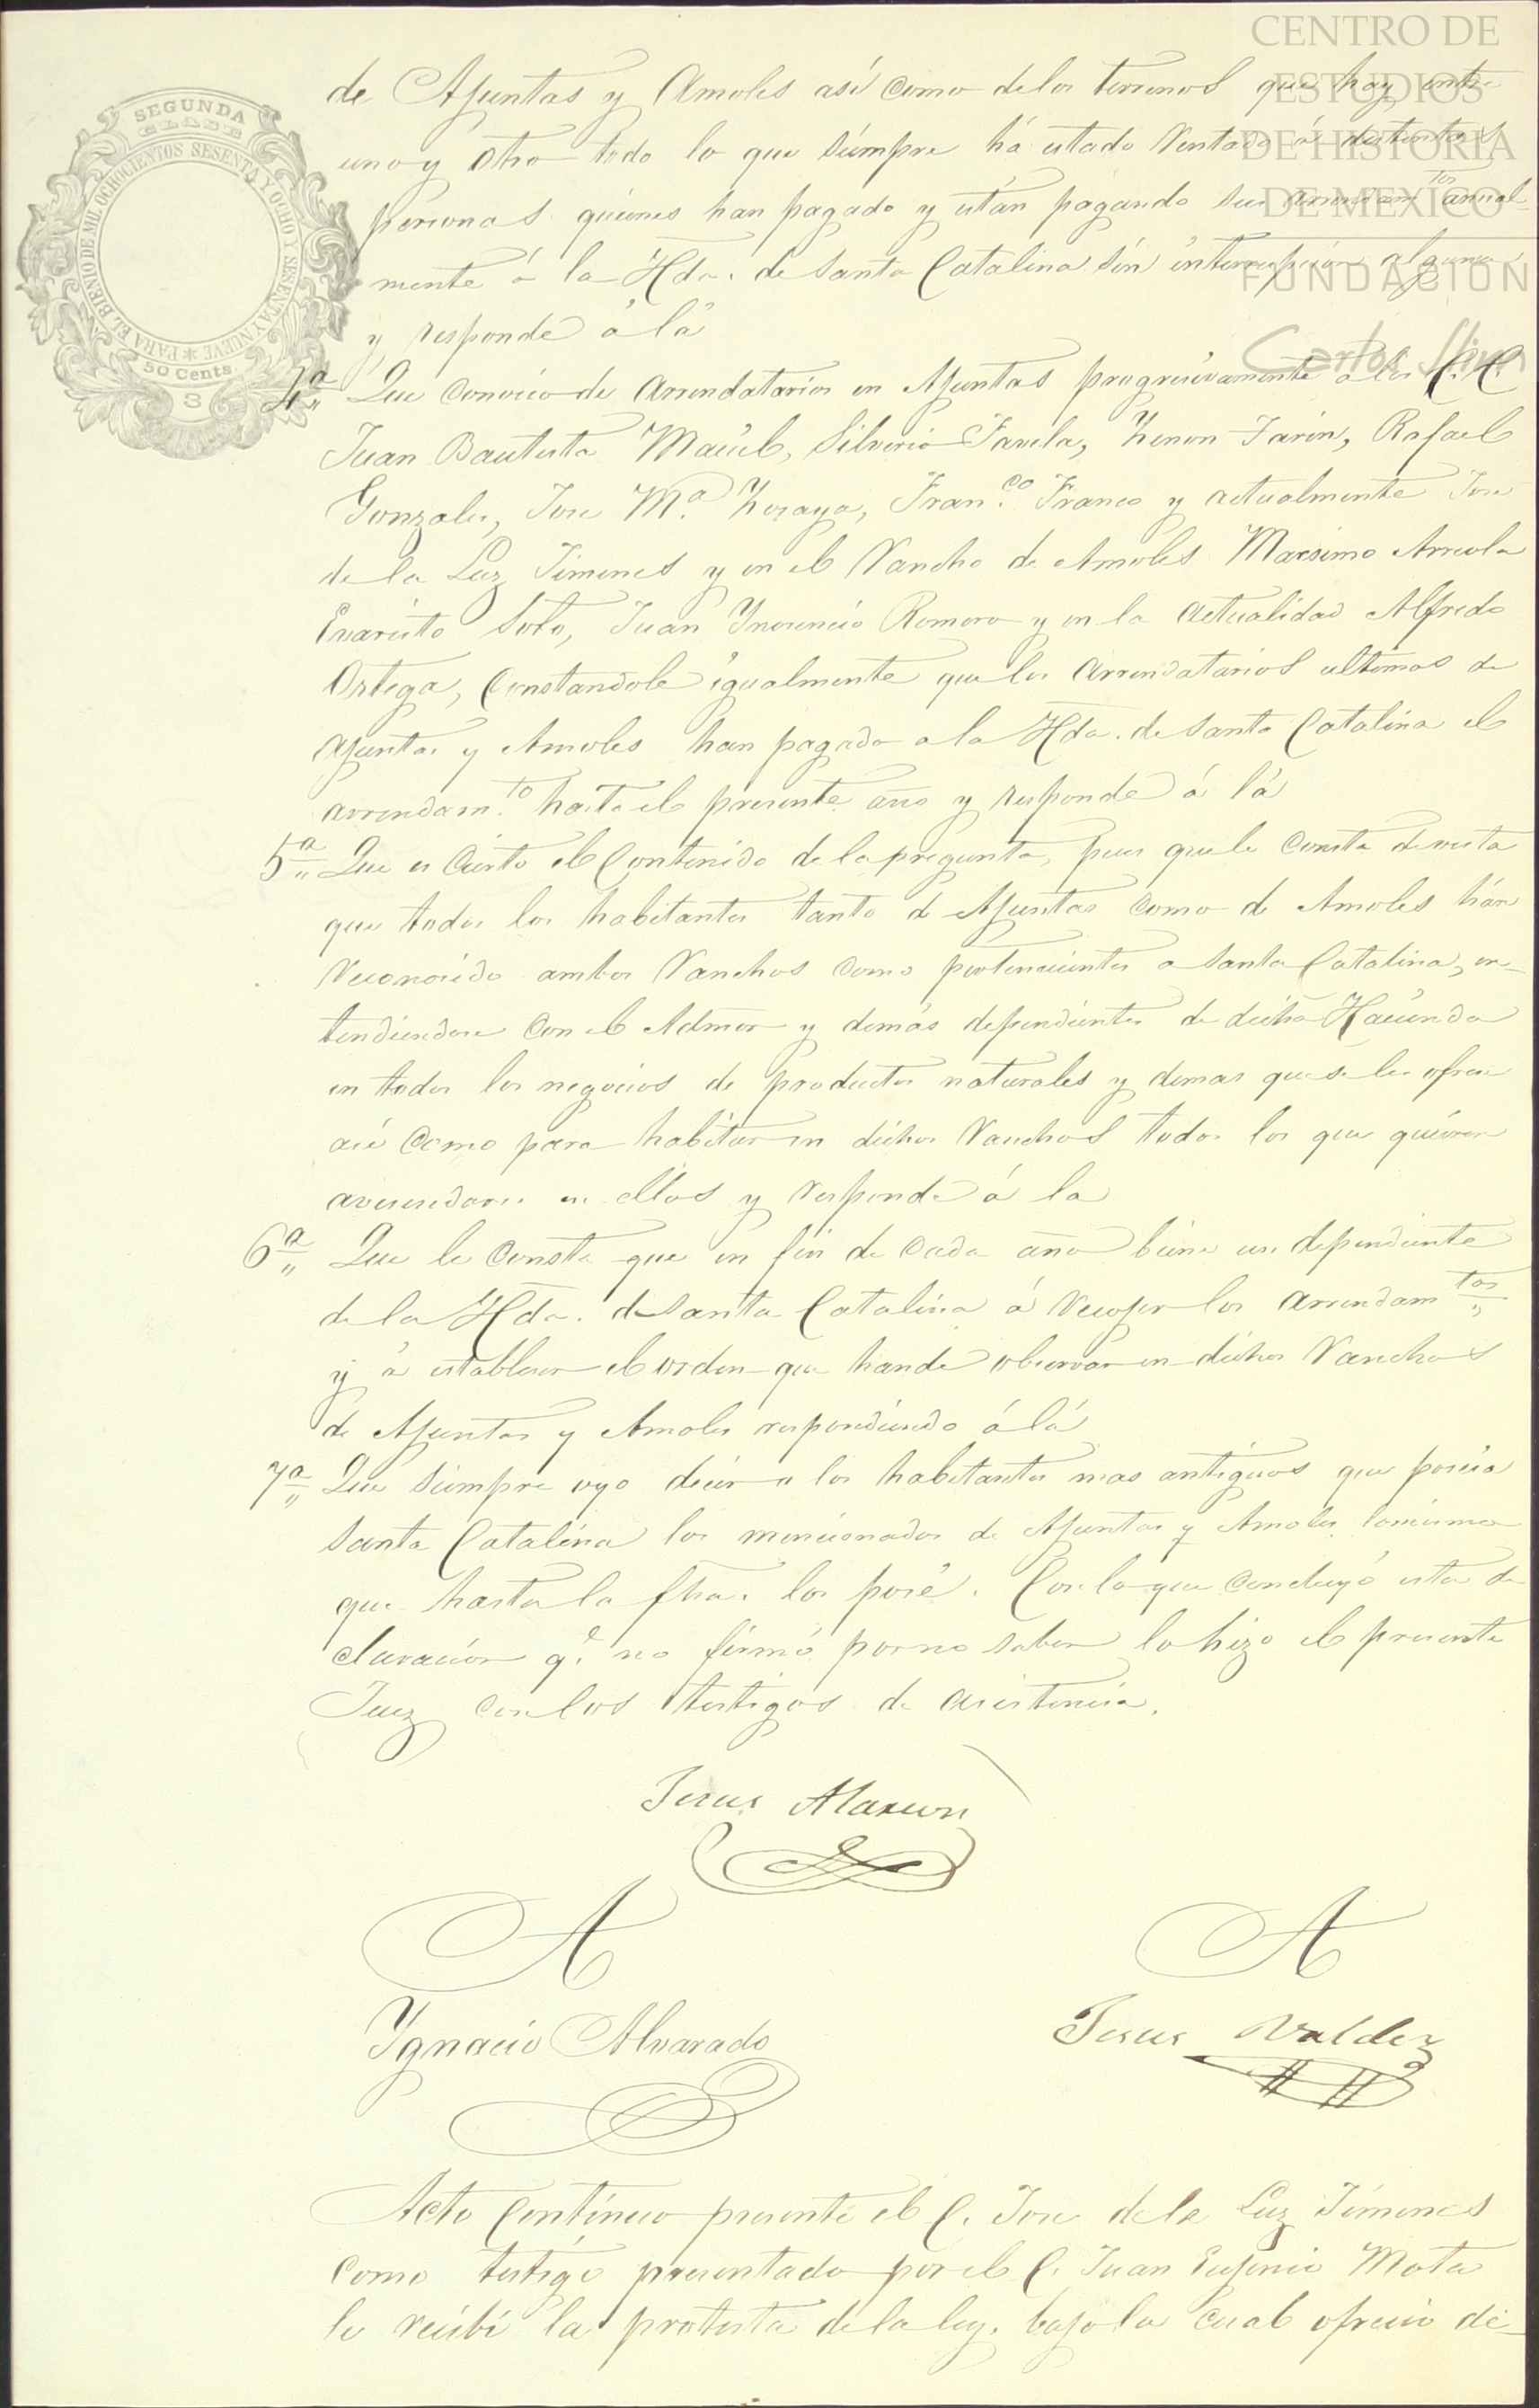 CENTRO DE
ESTUDIOS
DE HISTORIA
DE MEXICO
FUNDACION
Carlos Slim
SEGUNDA
CLASE
PARA EL BIENIO DE MIL OCHOCIENTOS SESENTA Y OCHO Y SESENTA Y NUEVE
50 Cents.
3
de Ajuntas y Amoles asi como de los terrenos que hay entre
uno y otro todo lo que siempre há estado rentado á distintas
personas quienes han pagado y están pagando sus arrendam.tos anual-
mente á la Hda. de Santa Catalina sin interrupcion alguna
y responde á lá
4a Que conocio de arrendatarios en Ajuntas progresivamente a los C.C.
Juan Bautista Maciel, Silverio Favela, Zenon Jarin, Rafael
Gonzales, Jose M.a Zesaya, Fran.co Franco y actualmente Jose
de la Luz Jimenes y en el Rancho de Amoles Maxsimo Arreola
Evaristo Soto, Juan Ynosencio Romero y en la actualidad Alfredo
Ortega, Constandole igualmente que los arrendatarios ultimos de
ajuntas y Amoles han pagado a la Hda. de Santa Catalina el
arrendam.to hasta el presente año y responde á lá
5a Que es cierto el Contenido de la pregunta, pues que le consta de vista
que todos los habitantes tanto de Ajuntas como de Amoles hán
reconosido ambos Ranchos como pertenecientes a Santa Catalina, en-
tendiendose con el Admor y demás dependientes de dicha Hacienda
en todos los negocios de productos naturales y demas que se les ofrece
asi como para habitar en dichos Ranchos todos los que quieren
avecendarse en ellos y responde á la
6a Que le consta que en fin de cada año biene un dependiente
de la Hda. de Santa Catalina á recojer los arrendam.tos
y á establecer el orden que hande observar en dichos Ranchos
de Ajuntas y Amoles respondiendo á lá
7a Que siempre oyo decir a los habitantes mas antiguos que poseia
Santa Catalina los mencionados de Ajuntas y Amoles lomismo
que hasta la fha. los poseé. Con lo que concluyó esta de
claracion q.e no firmó por no saber lo hizo el presente
Juez con los testigos de asistencia.
Jesus Alarcon
A
A
Ygnacio Alvarado
Jesus Valdez
Acto Continuo presente el C. Jose de la Luz Jimenes
como testigo presentado por el C. Juan Eujenio Mota
le recibi la protesta de la ley. bajo la cual ofrecio de-